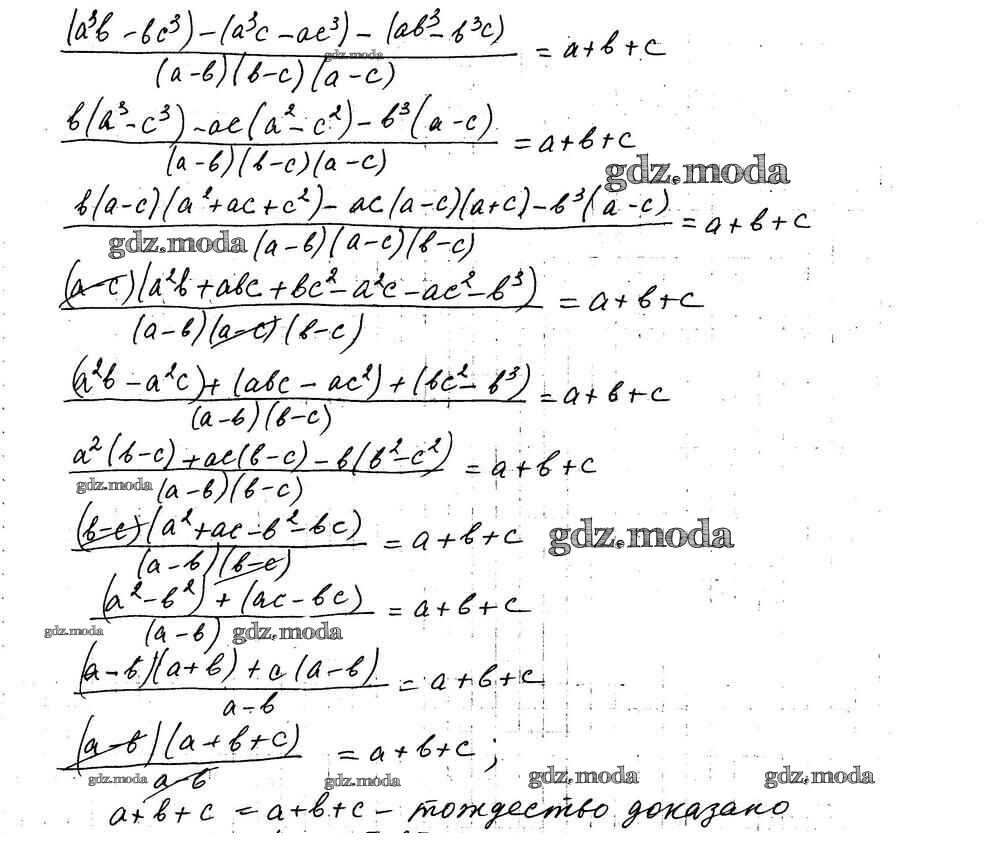 ((a³b - bc³) - (a³c - ac³) - (ab³ - b³c)) / ((a-b)(b-c)(a-c)) = a+b+c
gdz.moda
(b(a³-c³) - ac(a²-c²) - b³(a-c)) / ((a-b)(b-c)(a-c)) = a+b+c
gdz.moda
(b(a-c)(a²+ac+c²) - ac(a-c)(a+c) - b³(a-c)) / ((a-b)(a-c)(b-c)) = a+b+c
gdz.moda
((a-c)(a²b+abc+bc²-a²c-ac²-b³)) / ((a-b)(a-c)(b-c)) = a+b+c
((a²b-a²c)+(abc-ac²)+(bc²-b³)) / ((a-b)(b-c)) = a+b+c
(a²(b-c)+ac(b-c)-b(b²-c²)) / ((a-b)(b-c)) = a+b+c
gdz.moda
((b-c)(a²+ac-b²-bc)) / ((a-b)(b-c)) = a+b+c
gdz.moda
((a²-b²)+(ac-bc)) / (a-b) = a+b+c
gdz.moda gdz.moda
((a-b)(a+b)+c(a-b)) / (a-b) = a+b+c
((a-b)(a+b+c)) / (a-b) = a+b+c;
gdz.moda gdz.moda gdz.moda gdz.moda
a+b+c = a+b+c - тождество доказано